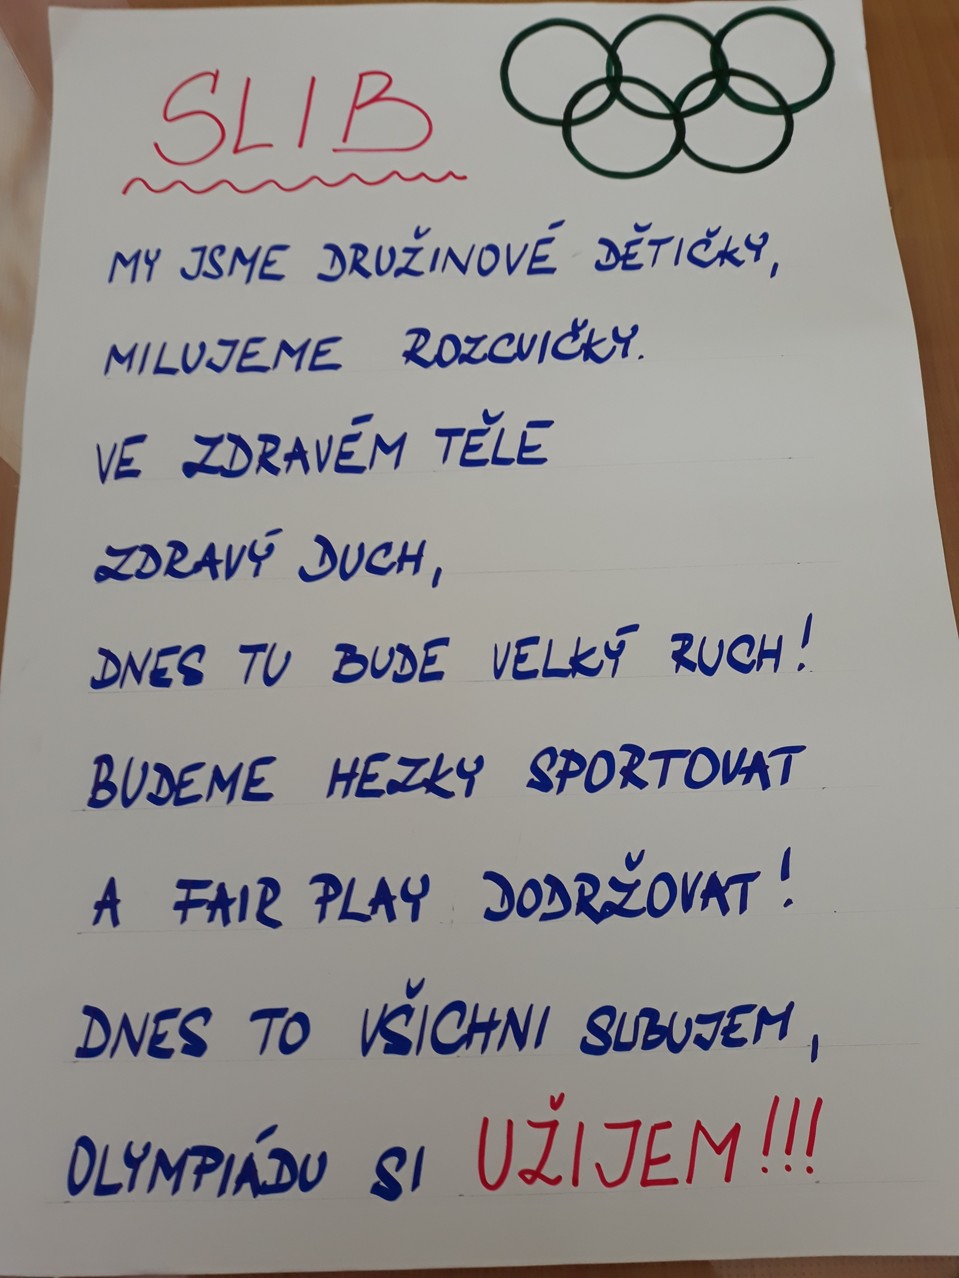 SLIB
MY JSME DRUŽINOVÉ DĚTIČKY,
MILUJEME ROZCVIČKY.
VE ZDRAVÉM TĚLE
ZDRAVÝ DUCH,
DNES TU BUDE VELKÝ RUCH!
BUDEME HEZKY SPORTOVAT
A FAIR PLAY DODRŽOVAT!
DNES TO VŠICHNI SLIBUJEM,
OLYMPIÁDU SI UŽIJEM!!!